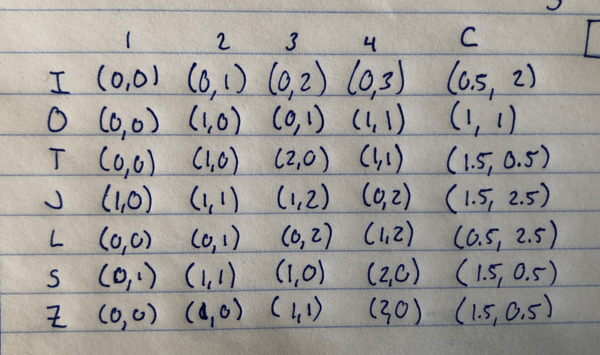 1 2 3 4 C
I (0,0) (0,1) (0,2) (0,3) (0.5, 2)
O (0,0) (1,0) (0,1) (1,1) (1, 1)
T (0,0) (1,0) (2,0) (1,1) (1.5, 0.5)
J (1,0) (1,1) (1,2) (0,2) (1.5, 2.5)
L (0,0) (0,1) (0,2) (1,2) (0.5, 2.5)
S (0,1) (1,1) (1,0) (2,0) (1.5, 0.5)
Z (0,0) (1,0) (1,1) (2,0) (1.5, 0.5)